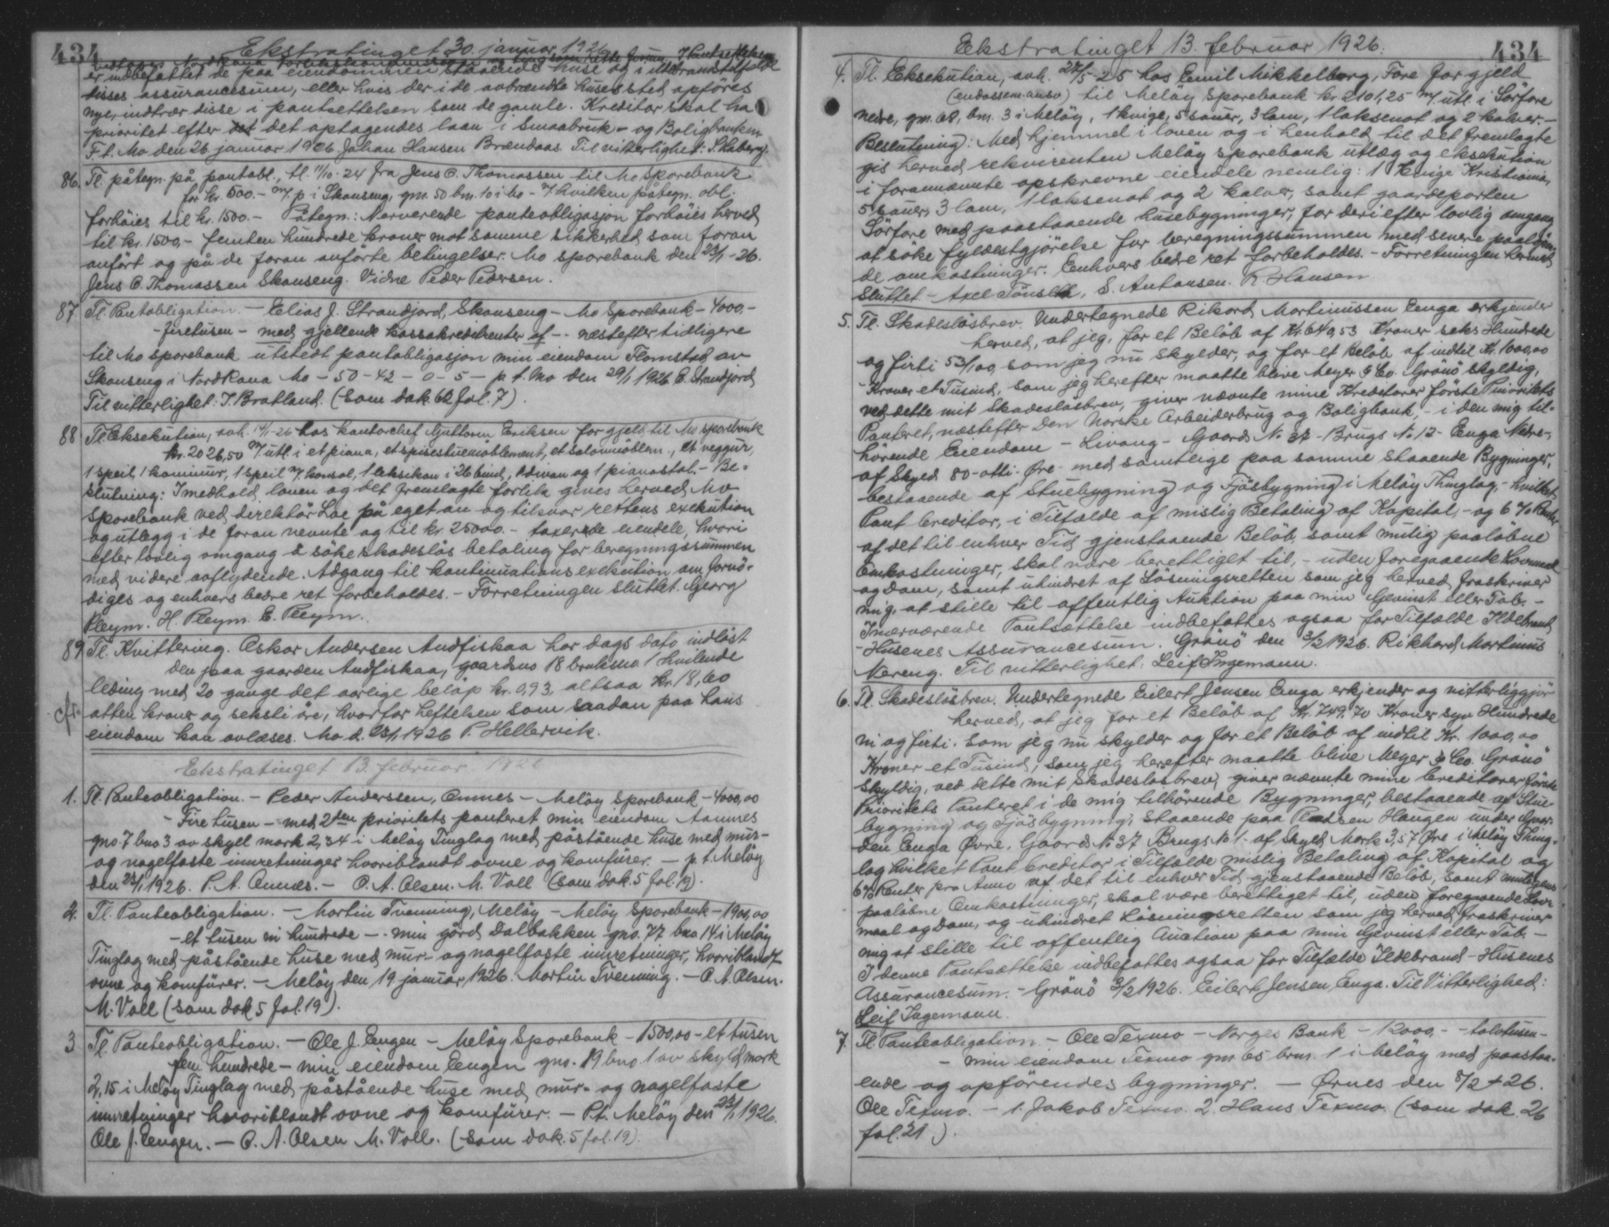 434
Ekstratinget 30. januar 1926.
er indbefattet de paa eiendommen staaende huse og i ildebrandstilfælde
disses assurancesum, eller hvis der i de avbrændte huses sted opføres
nye, indtrær disse i pantsettelsen som de gamle. Kreditor skal ha
prioritet efter det optagendes laan i Smaabruk- og Boligbanken
P.t. Mo den 26 januar 1926 Johan Hansen Brændaas Til vitterlighet: S. Haberg.
86. Tl. påtegn. på pantobl., tl. 11/10-24 fra Jens C. Thomassen til Mo Sporebank
for kr. 500.- m/ p i Skonseng, gnr. 50 bnr. 10 i Mo - v/ hvilken påtegn. obl.
forhöies til kr. 1500.- Påtegn.: Nærværende panteobligasjon forhöies herved
til kr. 1500,- femten hundrede kroner mot samme sikkerhed som foran
anfört og på de foran anförte betingelser. Mo sporebank den 23/1-26.
Jens C. Thomassen Skonseng. Vidne Peder Pedersen.
87 Tl. Pantobligation. - Elias J. Strandjord, Skonseng - Mo Sporebank - 4000.-
- firetusen - med gjellende kassakreditrenter af - næstefter tidligere
til Mo sporebank utstedt pantobligasjon min eiendom Flomstad av
Skonseng i Nordrana Mo - 50 - 42 - 0 - 5 - p. t. Mo den 29/1 1926 E. Strandjord
Til vitterlighet: J. Bratland. (Som dok 62 fol. 7).
88 Tl. Eksekution, avh. 14/1-26 hos kontorchef Guttorm Eriksen for gjeld til Mo sporebank
kr. 2026,50 m/ utl. i et piano, et spisestuemøblement, et salonmøblem., et veggur,
1 speil, 1 kommur, 1 speil m/ konsol, 1 leksikon i 26 bind, 1 divan og 1 pianostol. - Be-
slutning: I medhold av loven og det fremlagte forlik gives herved Mo
Sporebank ved direktör Loe på eget an og tilsvar rettens exekution
og utlegg i de foran nevnte og til kr. 25000.- taxerede eiendele, hvori
efter lovlig omgang å söke skadeslös betaling for beregningssummen
med videre avflydende. Adgang til kontinuationsexekution om fornö-
diges og enhvers bedre ret forbeholdes. - Forretningen sluttet. Georg
Pleym. H. Pleym E. Pleym.
89 Tl. Kvittering. Oskar Andersen Andfiskaa har dags dato indløst
den paa gaarden Andfiskaa, gaardsno 18 bruksno 1 hvilende
leding med 20 gange det aarlige beløp kr. 0,93 altsaa Kr. 18,60
atten kroner og seksti øre, hvorfor heftelsen som saadan paa hans
eiendom kan avlæses. Mo d. 23/1 1926 P. Hellervik.
Ekstratinget 13. februar 1926
1. Tl. Panteobligation. - Peder Anderssen, Ømnes - Meløy Sporebank - 4000,00
- Fire tusen - med 2den prioritets panteret min eiendom Aamnes
gno 7 bno 3 av skyll mark 2,34 i Meløy Tinglag med påstående huse med mur-
og nagelfaste innretninger hvoriblandt ovne og komfürer. - p. t. Meløy
den 23/1 1926. P. A. Ømnes. - O. A. Olsen. M. Voll (som dok. 5 fol. 19).
2. Tl. Panteobligation. - Mortin Tvenning, Meløy - Meløy Sporebank - 1900,00
- et tusen ni hundrede - min gård Dalbakken gno. 77 bno 14 i Meløy
Tinglag med påstående huse med mur- og nagelfaste innretninger, hvoriblandt
ovne og komfürer. - Meløy den 19 januar 1926. Mortin Tvenning. - O. A. Olsen.
M. Voll (som dok 5 fol. 19).
3 Tl. Panteobligation. - Ole J. Eengen - Meløy Sporebank - 1500,00 - et tusen
fem hundrede - min eiendom Eengen gno. 19 bno 1 av skyld mark
2,15 i Meløy Tinglag med påstående huse med mur- og nagelfaste
innretninger hvoriblandt ovne og komfürer. - P.t. Meløy den 23/1 1926.
Ole J. Eengen. - O. A. Olsen M. Voll. (som dok. 5 fol. 19).
Ekstratinget 13. februar 1926.
434
4. Tl. Eksekution, avh. 27/5-25 hos Emil Mikkelborg, Fore for gjeld
(endossem.ansv) til Meløy Sporebank kr 2101,25 m/ utl. i Sørfore
nedre, gnr. bnr. 3 i Meløy, 1 kvige, 5 sauer, 3 lam, 1 laksenot og 2 kalver. -
Beslutning: Med hjemmel i loven og i henhold til det fremlagte
gis herved rekvirenten Meløy sporebank utlæg og eksekution
i forannævnte opskrevne eiendele nemlig: 1 kvige Kristiana,
5 sauer, 3 lam, 1 laksenot og 2 kalver, samt gaardsparten
Sørfore med paastaaende husebygninger, for deri efter lovlig omgang
at søke fyldestgjørelse for beregningssummen med senere paaløben
de omkostninger. Enhvers bedre ret forbeholdes. - Forretningen hermed
Sluttet - Axel, S. Antonsen. R. Hansen
5. Tl. Skadesløsbrev. Undertegnede Rikard Mortinussen Enga erkjender
herved, at jeg, for et Beløb af Kr. 640,53 Kroner seks Hundrede
og firti 53/100 som jeg nu skylder, og for et Beløb af indtil Kr. 1000,00
- Kroner et Tusind, som jeg herefter maatte blive Meyer & Co. Grønö skyldig,
ved dette mit Skadesløsbrev, giver nævnte mine Kreditorer første Prioritets
Panteret, næstefter Den Norske Arbeiderbrug og Boligbank, - i den mig til-
hørende Eiendom - Livang - Gaards No 37 - Brugs No 12 - Enga Nedre-,
af Skyld 80 - otti - Øre - med samtlige paa samme staaende Bygninger,
bestaaende af Stuebygning og Fjøsbygning i Meløy Thinglag, - hvilket
Pant Creditor, i Tilfælde af mislig Betaling af Kapital, - og 6 % Renter
af det til enhver Tid gjenstaaende Beløb, samt mulig paaløbne
Omkostninger, skal være berettiget til, - uden foregaaende Lovmaal
og Dom, samt uhindret af Løsningsretten som jeg herved fraskriver
mig, at stille til offentlig Auktion paa min Gevinst eller Tab. -
I nærværende Pantsættelse indbefattes ogsaa for Tilfælde Ildebrand,
- Husenes Assurancesum. Grønö den 3/2 1926. Rikhard Mortinus
Nereng. Til vitterlighet. Leif Ingemann.
6. Tl. Skadesløsbrev. Undertegnede Eilert Jensen Enga erkjender og vitterliggjör
herved, at jeg for et Beløb af Kr. 749,70 Kroner syv Hundrede
ni og firti. som jeg nu skylder og for et Beløb af indtil Kr. 1000,00
Kroner et Tusind, som jeg herefter maatte blive Meyer & Co. Grönö
skyldig, ved dette mit Skadesløsbrev, giver nævnte mine Creditorer første
Prioritets Panteret i de mig tilhörende Bygninger, bestaaende af Stue-
bygning og Fjøsbygning, staaende paa Hangen under Gaar-
den Enga Øvre, Gaards No 37 Brugs No 1. af Skyld Mark 3,57 Øre i Meløy Thing-
lag hvilket Pant Creditor i Tilfælde mislig Betaling af Kapital og
6% Renter pro Anno af det til enhver Tid gjenstaaende Beløb, samt muligens
paaløbne Omkostninger, skal være berettiget til, uden foregaaende Lov-
maal og Dom, og uhindret Løsningsretten som jeg herved fraskriver
mig at stille til offentlig Auction paa min Gevinst eller Tab. -
I denne Pantsættelse indbefattes ogsaa for Tilfælde Ildebrand - Husenes
Assurancesum. - Grönö 3/2 1926. Eilert Jensen Enga. Til Vitterlighed:
Leif Ingemann.
7. Tl. Panteobligation - Ole Texmo - Norges Bank - 12000.- - tolvtusen -
- min eiendom Texmo gnr 65 brnr. 1 i Meløy med paastaa-
ende og opförendes bygninger. - Ørnes den 8/2 1926.
Ole Texmo. - 1. Jakob Texmo. 2. Hans Texmo. (som dok. 26
fol. 21.).